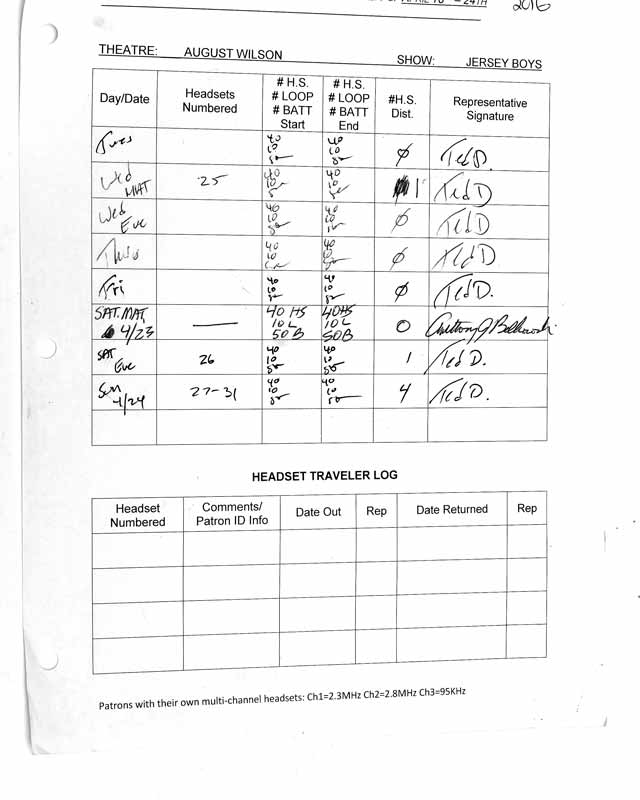 APRIL 18 - 24TH
2016
THEATRE: AUGUST WILSON SHOW: JERSEY BOYS
Day/Date Headsets Numbered # H.S. # LOOP # BATT Start # H.S. # LOOP # BATT End #H.S. Dist. Representative Signature
Tues 40 10 50 40 10 50 Ø Ted D.
Wed MAT 25 40 10 5 40 10 50 1 Ted D
Wed Eve 40 10 50 40 10 Ø Ted D
Thurs 40 10 40 10 50 Ø Ted D
Fri 40 10 50 40 10 50 Ø Ted D.
SAT. MAT, 4/23 — 40 HS 10 L 50 B 40HS 10 L 50B 0
SAT Eve 26 40 10 50 40 10 50 1 Ted D.
Sun 4/24 27-31 40 10 50 40 10 50 4 Ted D.
HEADSET TRAVELER LOG
Headset Numbered Comments/ Patron ID Info Date Out Rep Date Returned Rep
Patrons with their own multi-channel headsets: Ch1=2.3MHz Ch2=2.8MHz Ch3=95KHz